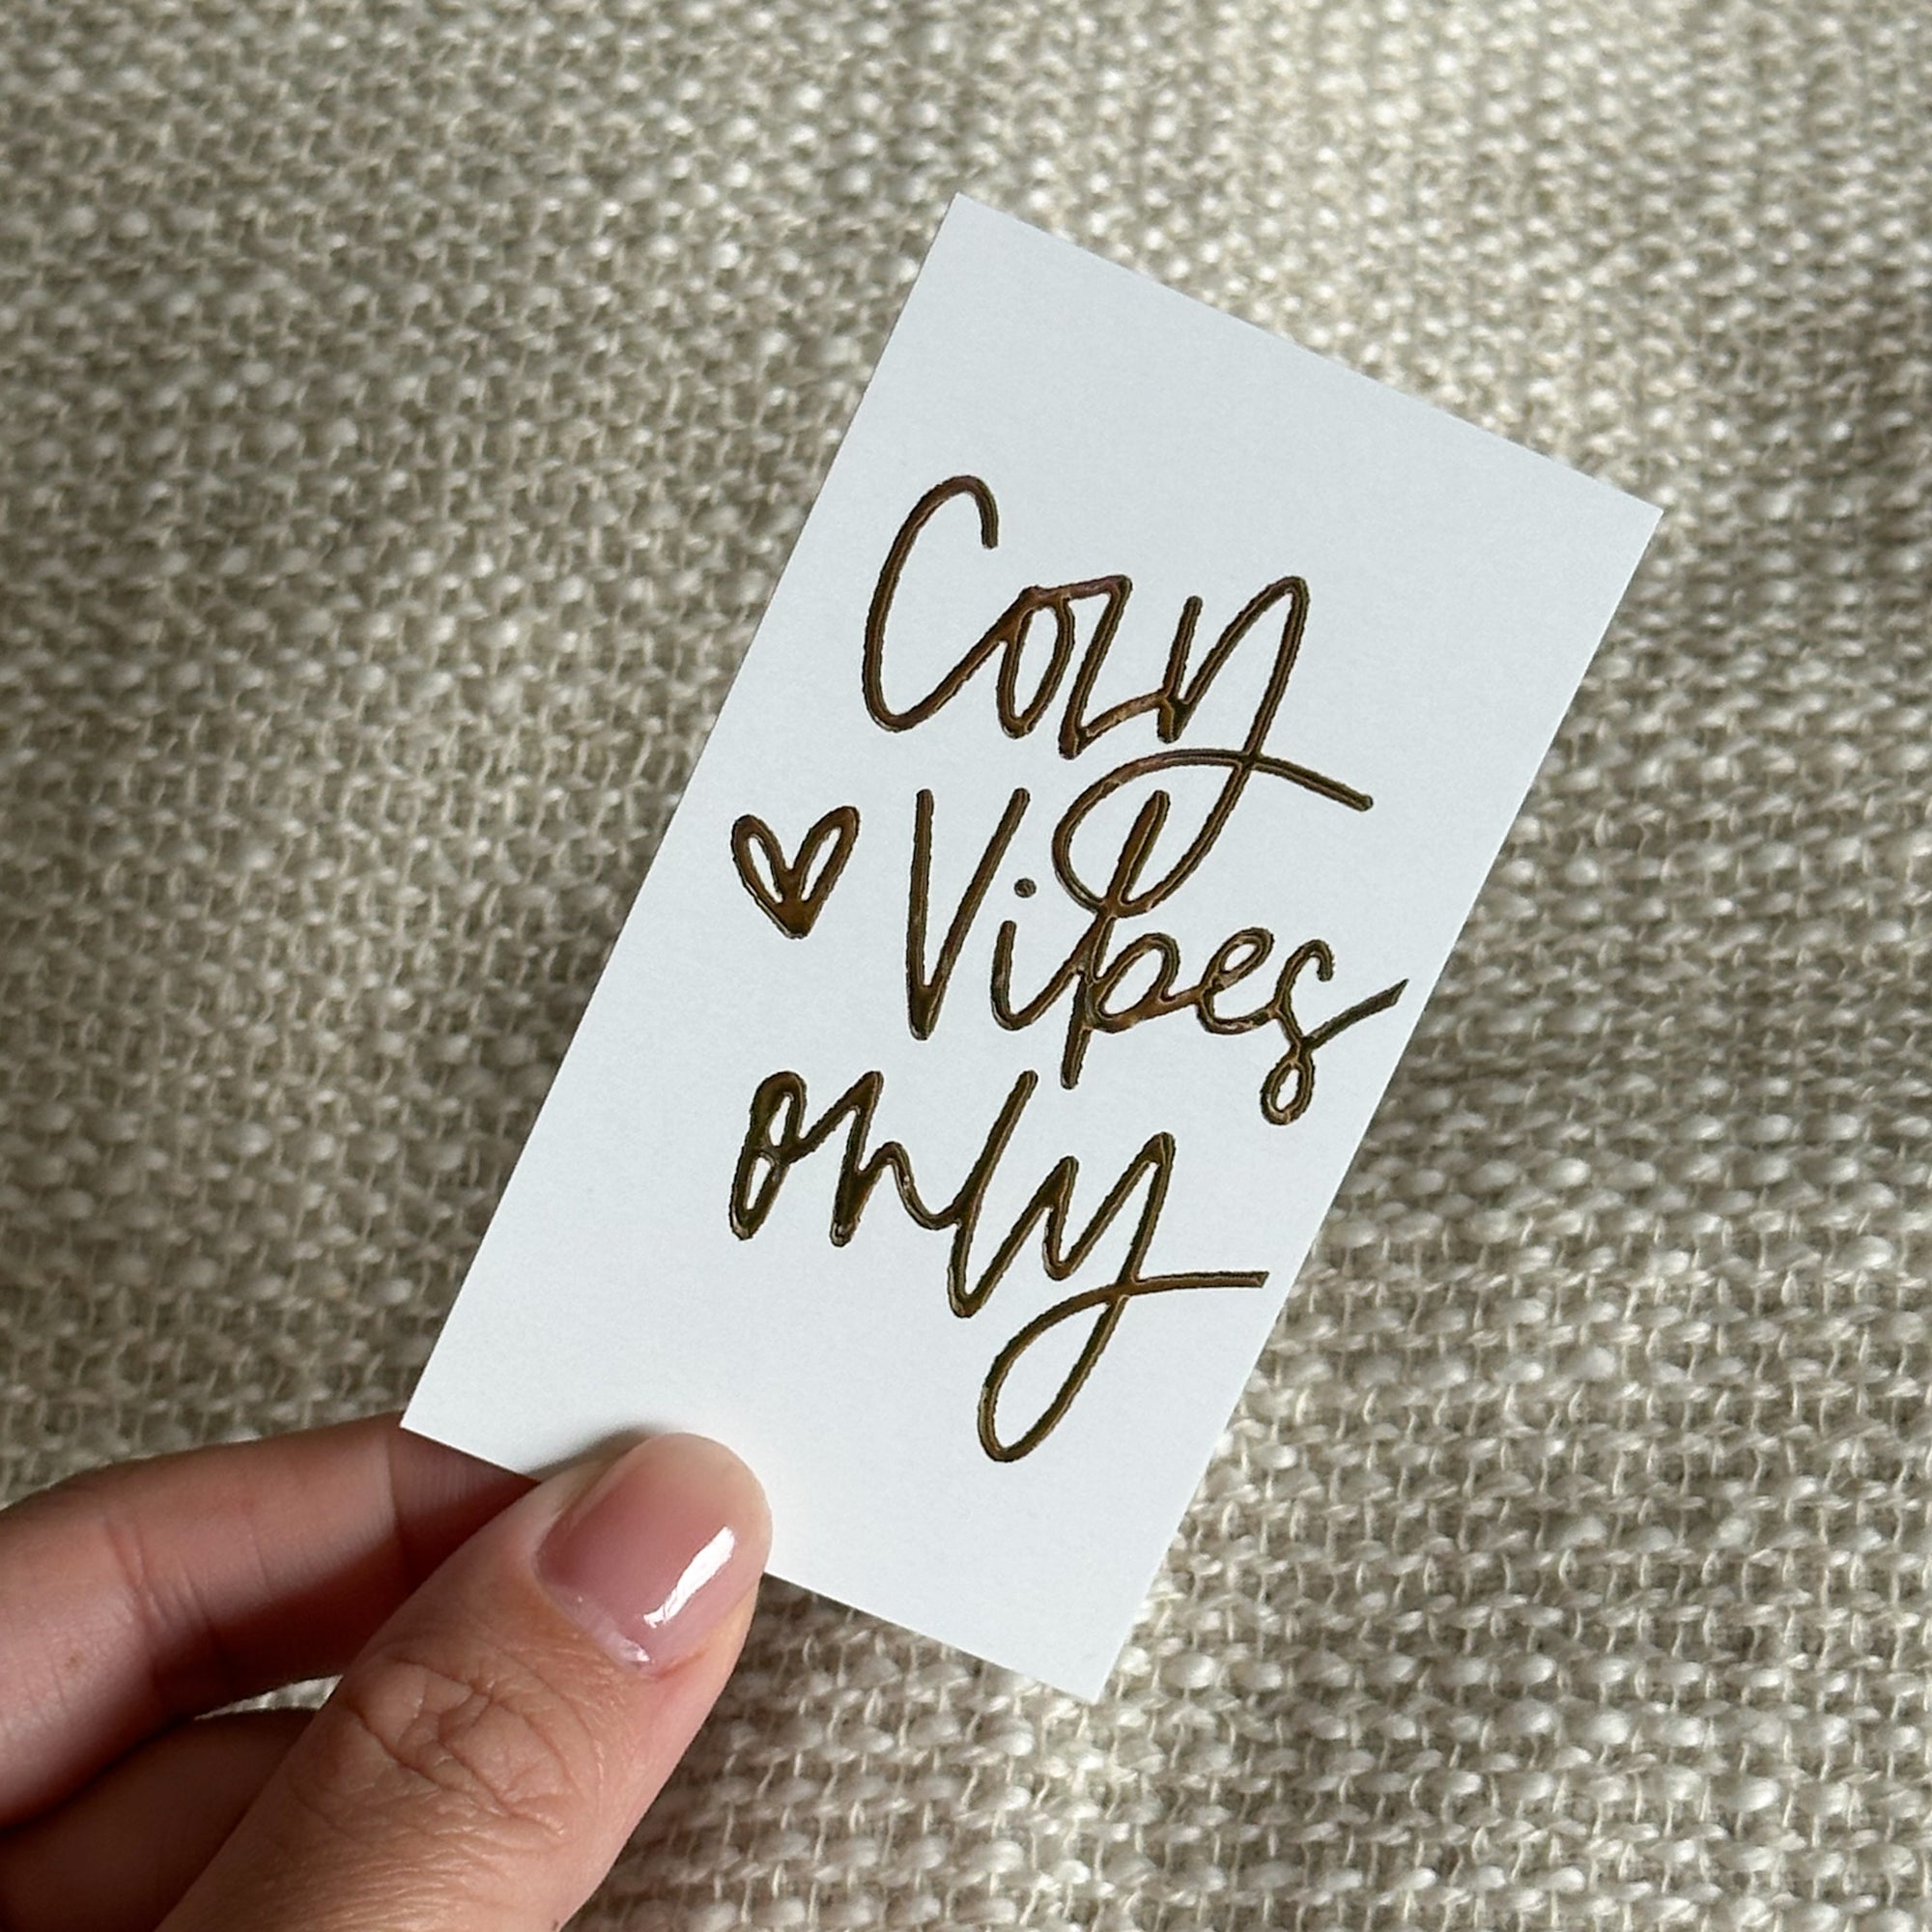 Cozy
Vibes
only